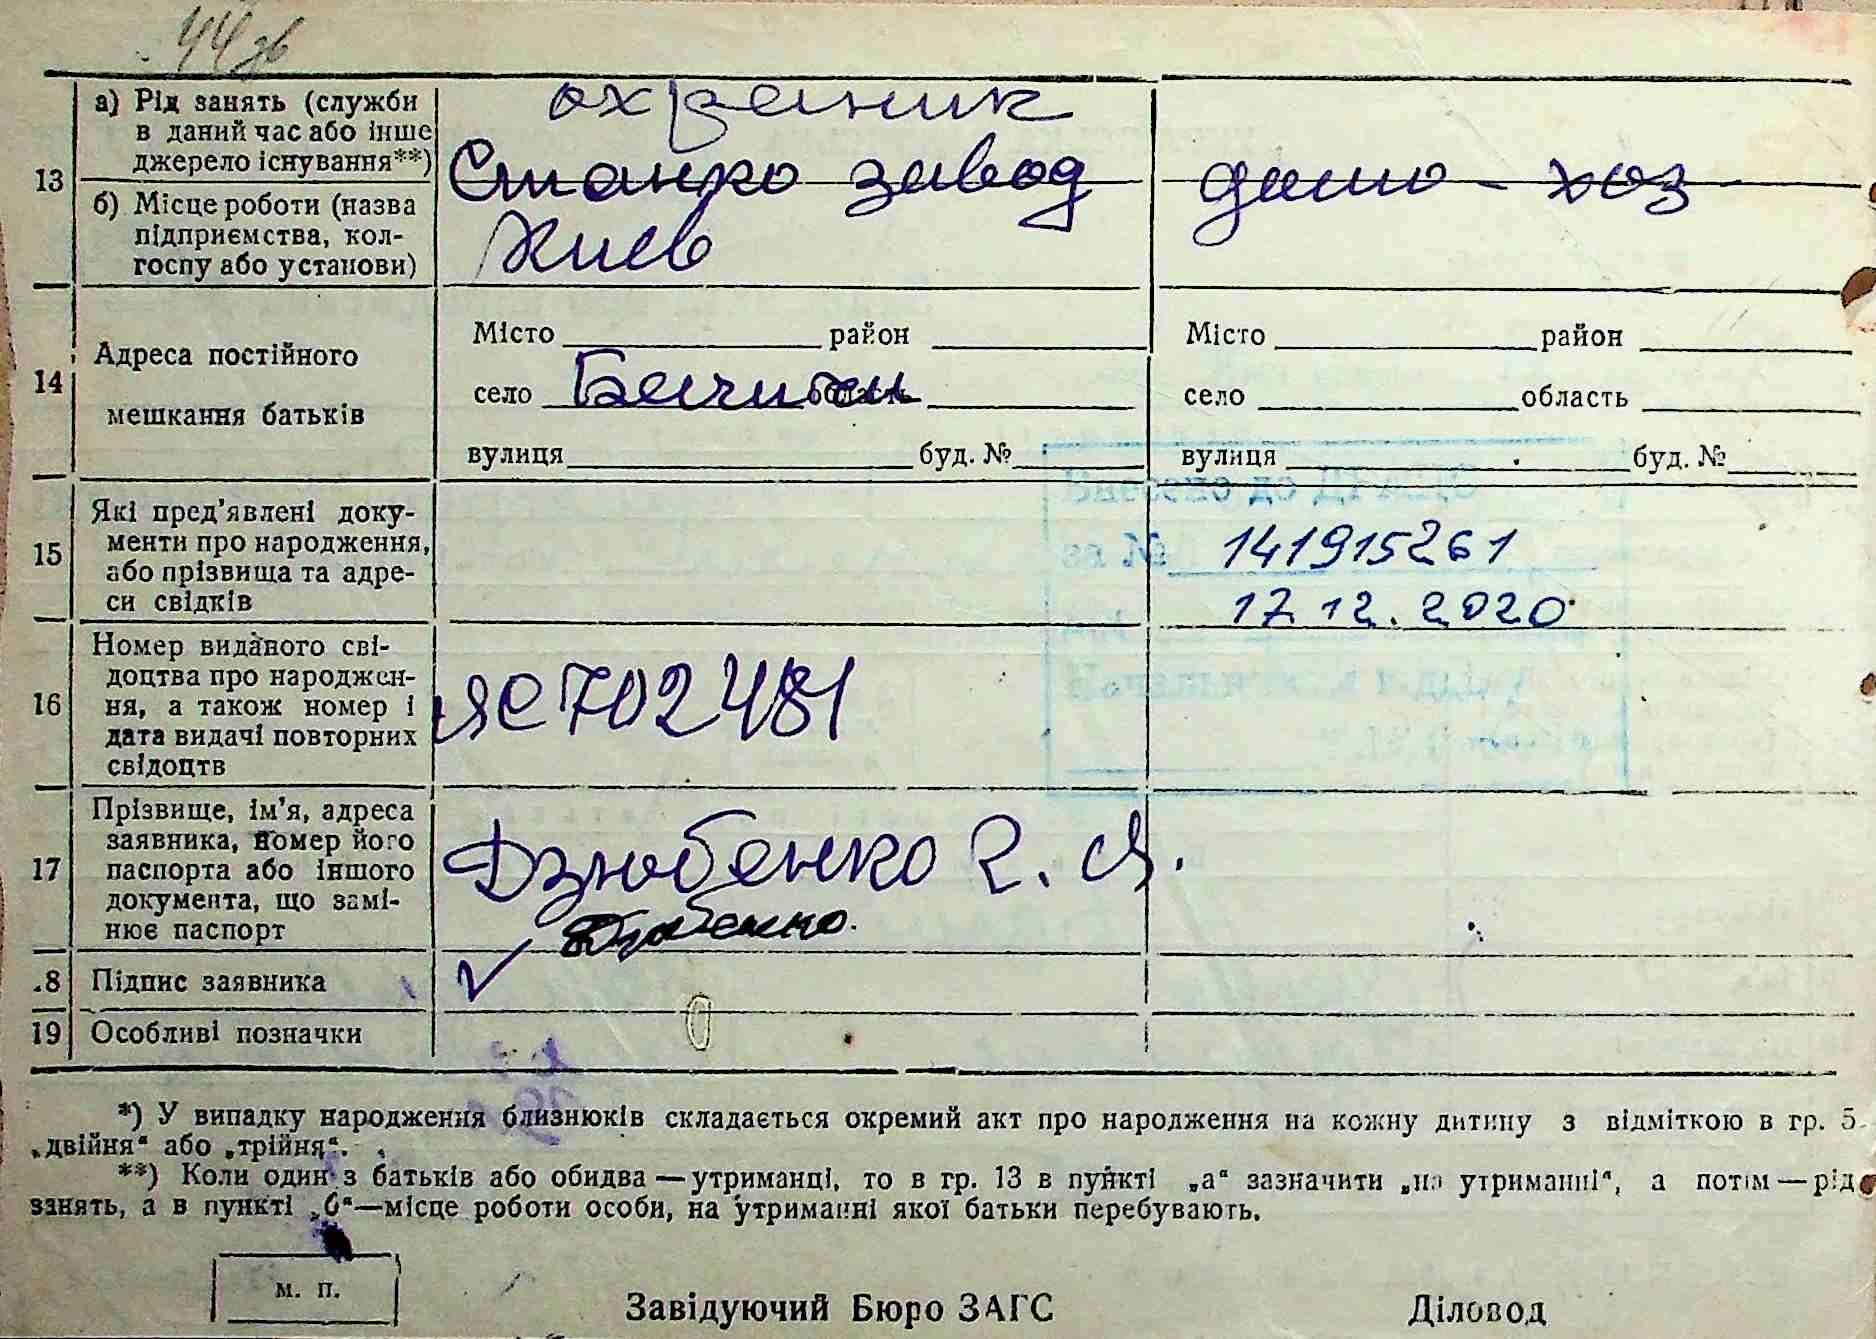 44 зв
13
а) Рід занять (служби
в даний час або інше
джерело існування**)
охраник
Станко завод
Киев
дамо - хоз
б) Місце роботи (назва
підприємства, кол-
госпу або установи)
14
Адреса постійного
мешкання батьків
Місто район
село область
вулиця буд. №
Місто район
село область
вулиця буд. №
15
Які пред’явлені доку-
менти про народження,
або прізвища та адре-
си свідків
141915261
17 12. 2020
16
Номер виданого сві-
доцтва про народжен-
ня, а також номер і
дата видачі повторних
свідоцтв
ЯС 702481
17
Прізвище, ім’я, адреса
заявника, номер його
паспорта або іншого
документа, що замі-
нює паспорт
Дзюбенко Г. Я.
Дзюбенко.
18 Підпис заявника
19 Особливі позначки
*) У випадку народження близнюків складається окремий акт про народження на кожну дитину з відміткою в гр. 5
„двійня“ або „трійня“.
**) Коли один з батьків або обидва — утриманці, то в гр. 13 в пункті „а“ зазначити „на утриманні“, а потім — рід
занять, а в пункті „б“—місце роботи особи, на утриманні якої батьки перебувають.
м. п.
Завідуючий Бюро ЗАГС
Діловод